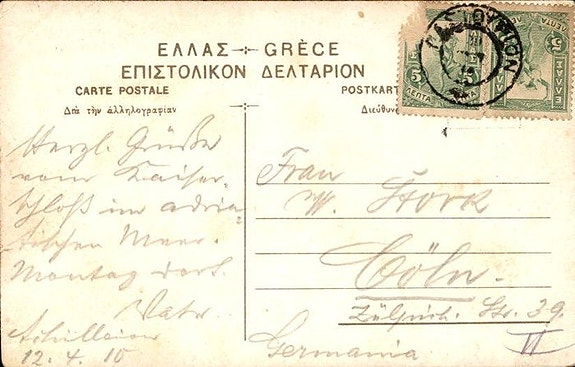 ΕΛΛΑΣ GRÈCE
ΕΠΙΣΤΟΛΙΚΟΝ ΔΕΛΤΑΡΙΟΝ
CARTE POSTALE
POSTKART
Διὰ τὴν ἀλληλογραφίαν
Διεύθυν
5
ΛΕΠΤΑ
ΕΛΛΑΣ
5
ΛΕΠΤΑ
Herzl. Grüße
vom Kaiser-
schloß im adria-
tischen Meer.
Montag dort.
Vater
Achilleion
12. 4. 10
Frau
W. Stork
Cöln.
Zülpich. Str. 39.
VI
Germania